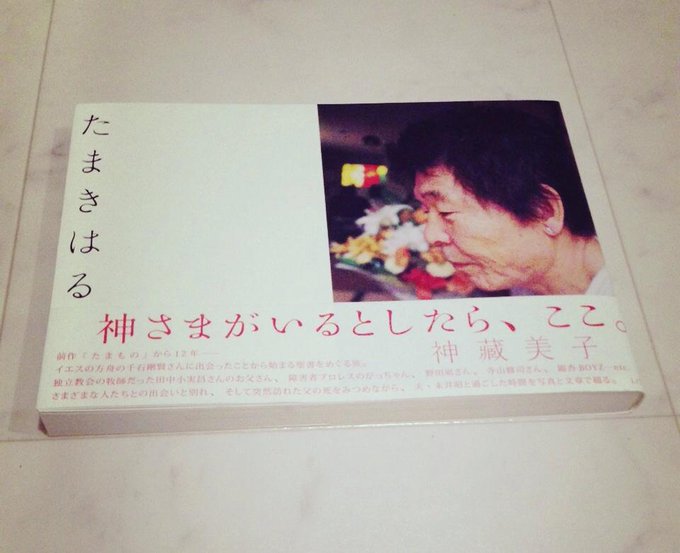 たまきはる
神さまがいるとしたら、ここ。
神藏美子
前作『たまもの』から12年――
イエスの方舟の千石剛賢さんに出会ったことから始まる聖書をめぐる旅。
独立教会の牧師だった田中小実昌さんのお父さん、障害者プロレスのがっちゃん、野田凪さん、寺山修司さん、銀杏BOYZ…etc.
さまざまな人たちとの出会いと別れ、そして突然訪れた父の死をみつめながら、夫・末井昭と過ごした時間を写真と文章で綴る。